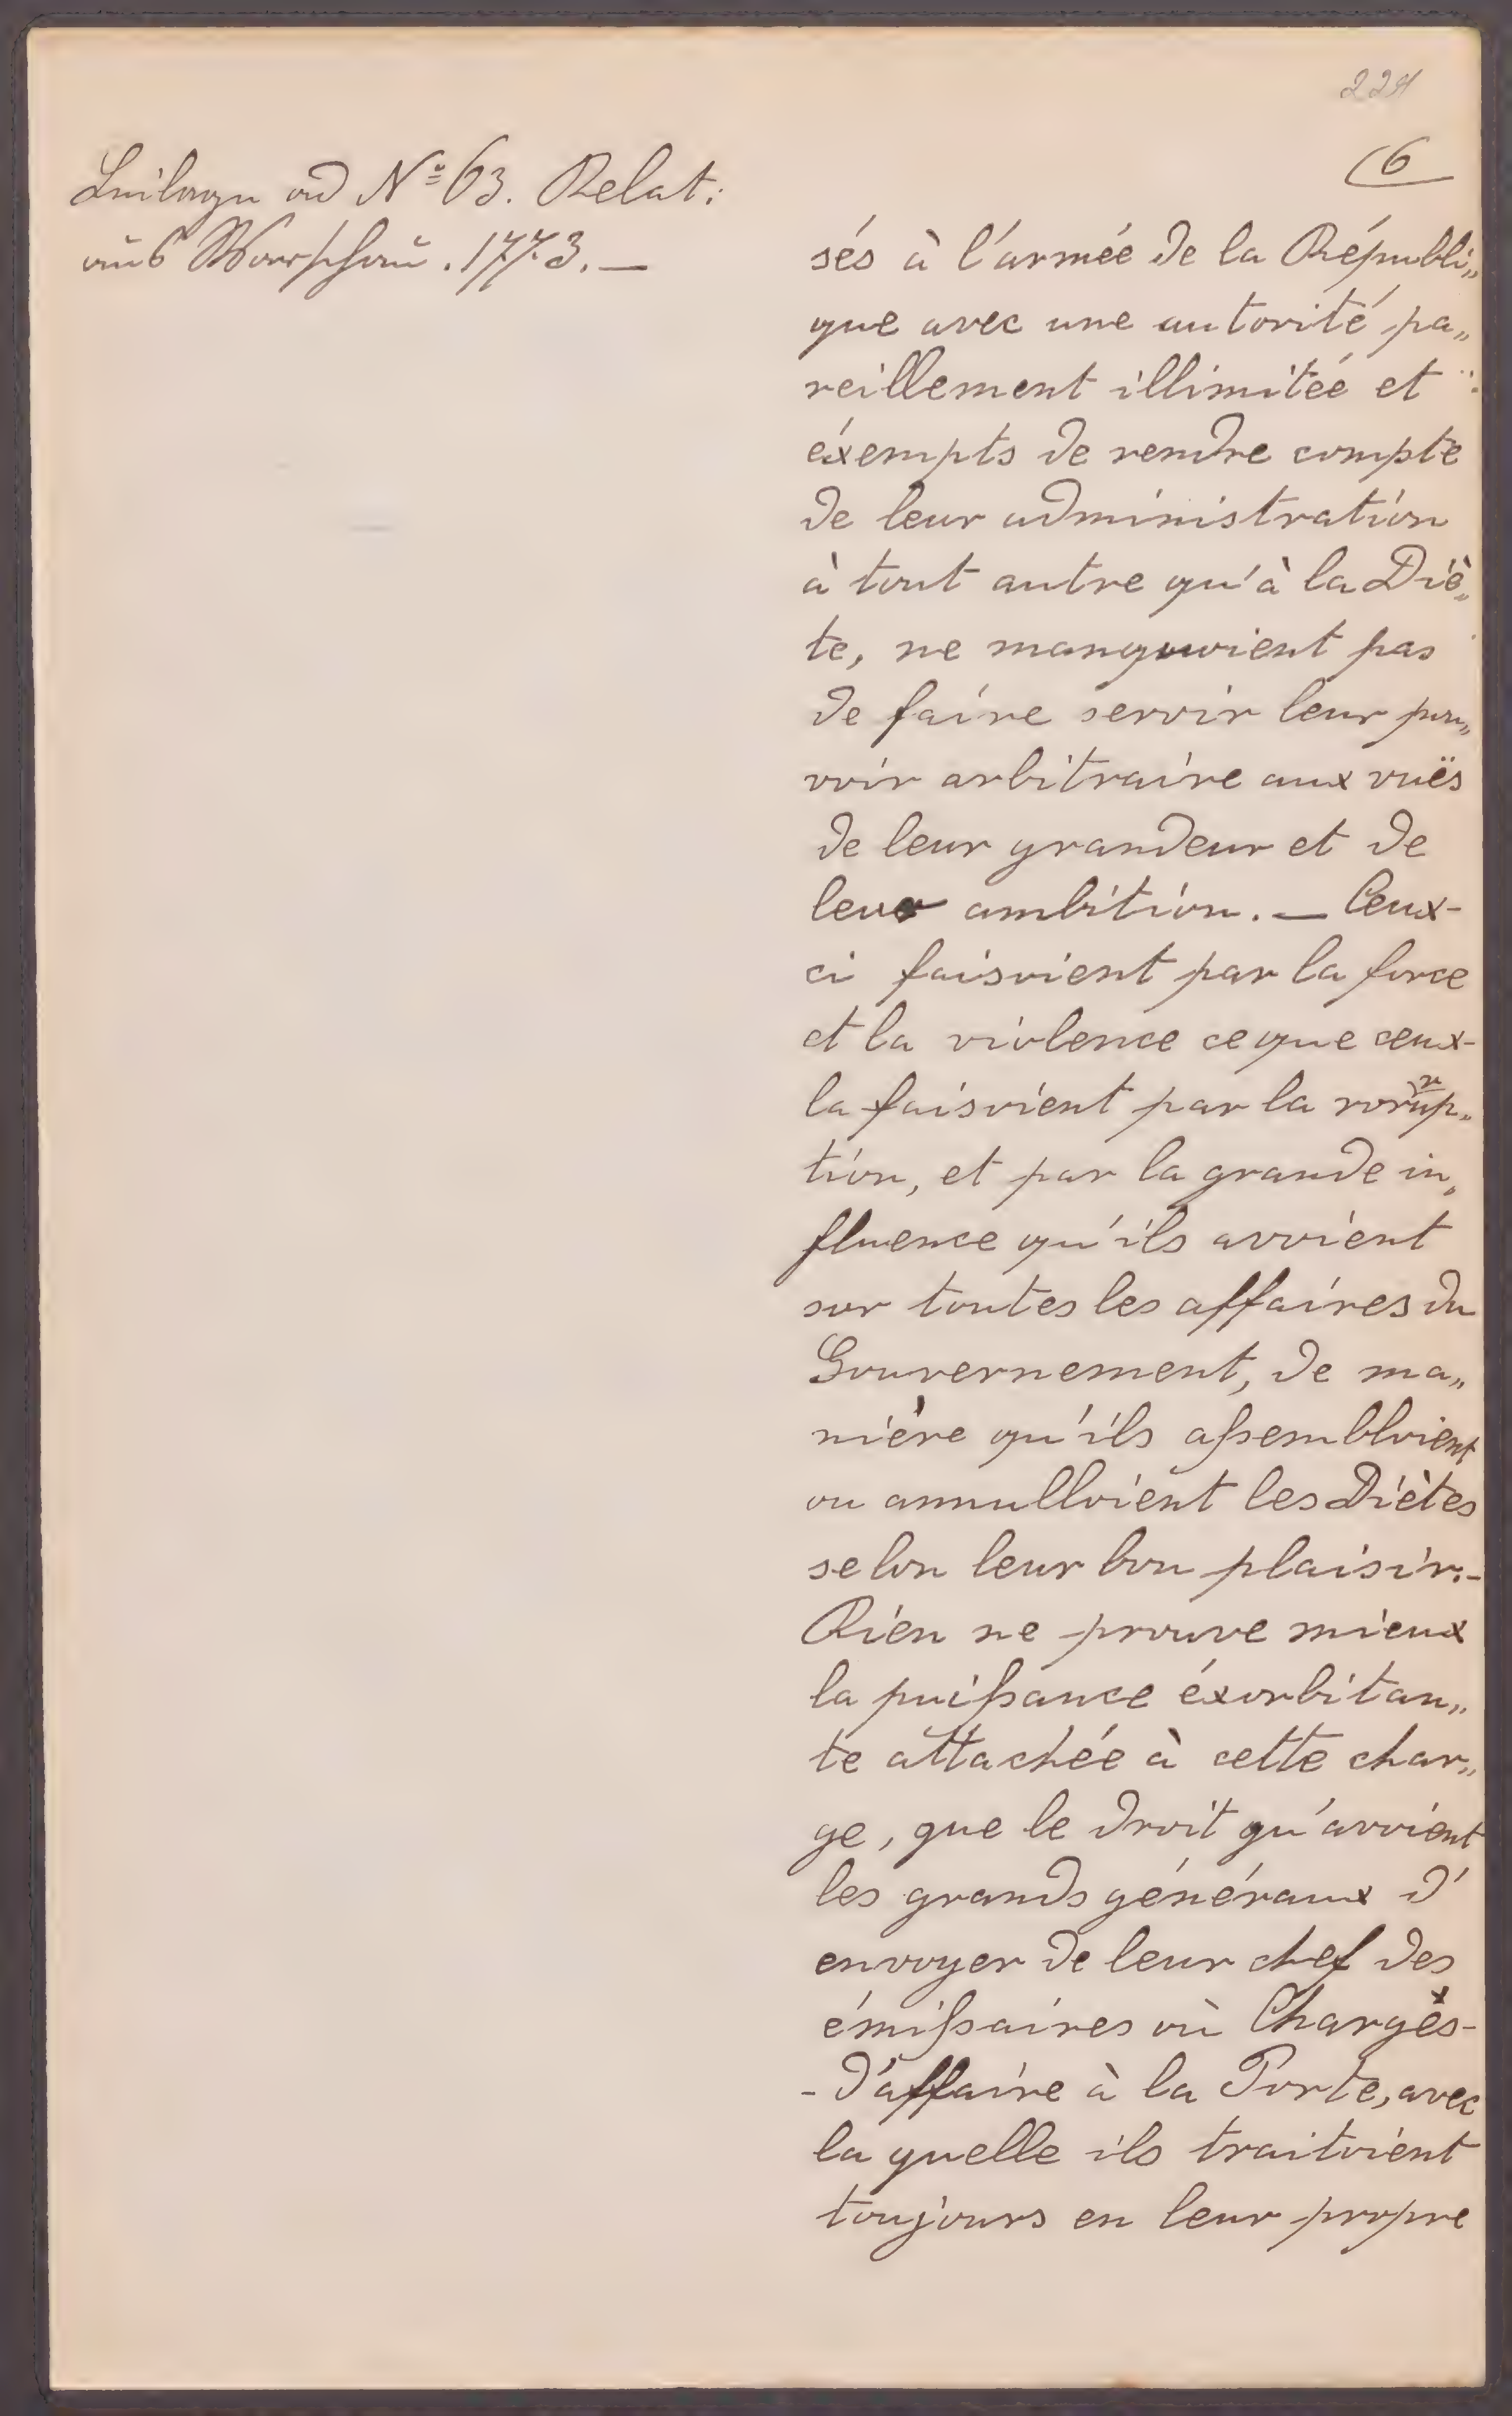 224
(6
Beilage ad Nº 63. Relat:
aus Warschau. 1773. —
sés à l'armée de la Républi„
que avec une autorité pa„
reillement illimitée et
éxempts de rendre compte
de leur administration
à tout autre qu'à la Diè„
te, ne manquoient pas
de faire servir leur pou„
voir arbitraire aux vuës
de leur grandeur et de
leur ambition. — Ceux-
ci faisoient par la force
et la violence ce que ceux-
la faisoient par la corrup„
tion, et par la grande in„
fluence qu'ils avoient
sur toutes les affaires du
Gouvernement, de ma„
nière qu'ils aſsembloient
ou annulloient les Diètes
selon leur bon plaisir. -
Rien ne prouve mieux
la puiſsance éxorbitan„
te attachée à cette char„
ge, que le droit qu'avoient
les grands généraux d'
envoyer de leur chef des
émiſsaires où Chargés-
- d'affaire à la Porte, avec
la quelle ils traitoient
toujours en leur propre